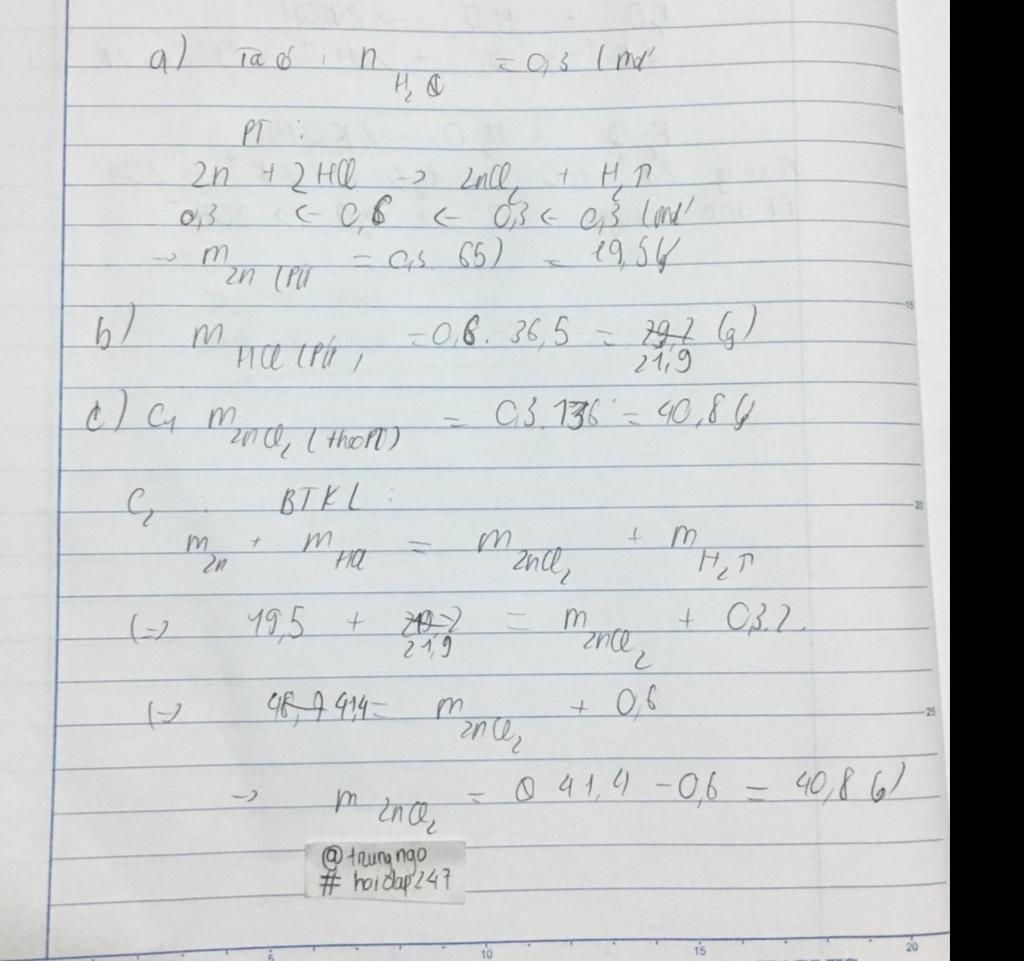 a) Ta có n H₂ = 0,3 (mol
PT :
Zn + 2HCl -> ZnCl₂ + H₂↑
0,3 <- 0,6 <- 0,3 <- 0,3 (mol
-> m Zn (PƯ = 0,3. 65) = 19,5 (g
b) m HCl (PƯ) = 0,6. 36,5 = 21,9 (g)
c) C₁ m ZnCl₂ (theo PT) = 0,3.136 = 40,8 (g
C₂ : BTKL :
m Zn + m HCl = m ZnCl₂ + m H₂↑
(=> 19,5 + 21,9 = m ZnCl₂ + 0,3.2.
(=> 41,4 = m ZnCl₂ + 0,6
-> m ZnCl₂ = 41,4 - 0,6 = 40,8 (g)
@trungngo
# hoidap247
5 10 15 20
15
20
25